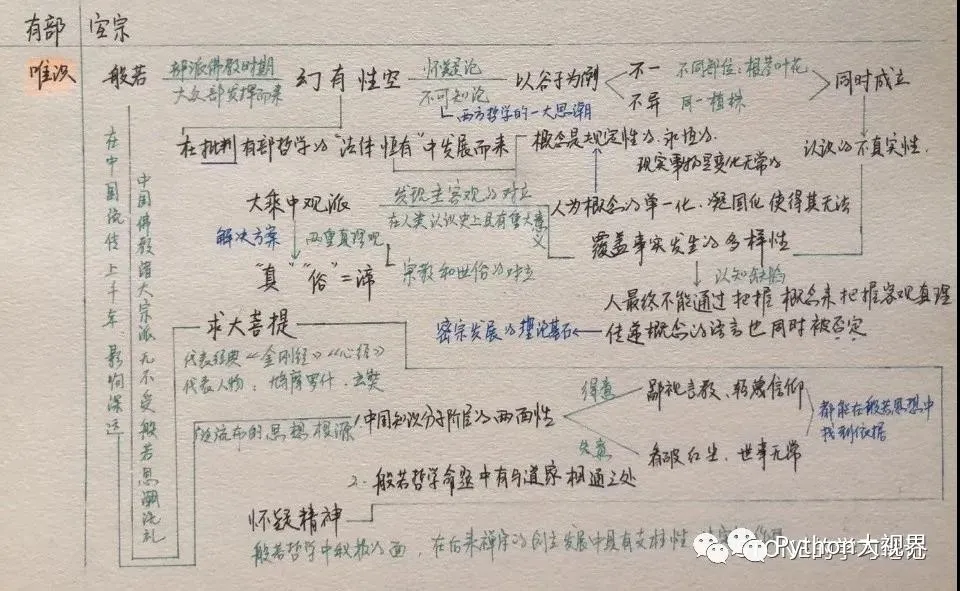 有部 空宗
唯识
般若
部派佛教时期
大众部发挥而来
幻有性空
怀疑论
不可知论
西方哲学的一大思潮
以谷子为例
不一 不同部位：根茎叶花
不异 同一植株
同时成立
在批判有部哲学的“法体恒有”中发展而来
概念是规定性的、永恒的、
现实事物是变化无常的
认识的不真实性
大乘中观派
发现主客观的对立
在人类认识史上具有重大意义
人为概念的单一化、凝固化使得其无法
覆盖事实发生的多样性
解决方案
两重真理观
宗教和世俗的对立
“真”“俗”二谛
认知缺陷
人最终不能通过把握概念来把握客观真理
传递概念的语言也同时被否定
密宗发展的理论基石
求大菩提
代表经典《金刚经》《心经》
代表人物：鸠摩罗什、玄奘
在中国流传上千年，影响深远
中国佛教诸大宗派无不受般若思潮洗礼
流布的思想根源
1.中国知识分子阶层的两面性
得意
鄙视言教、轻蔑信仰
失意
看破红尘、世事无常
都能在般若思想中
找到依据
2.般若哲学命题中有与道家相通之处
怀疑精神
般若哲学中积极的面，在后来禅宗的创立发展中具有支柱性
Python大视界